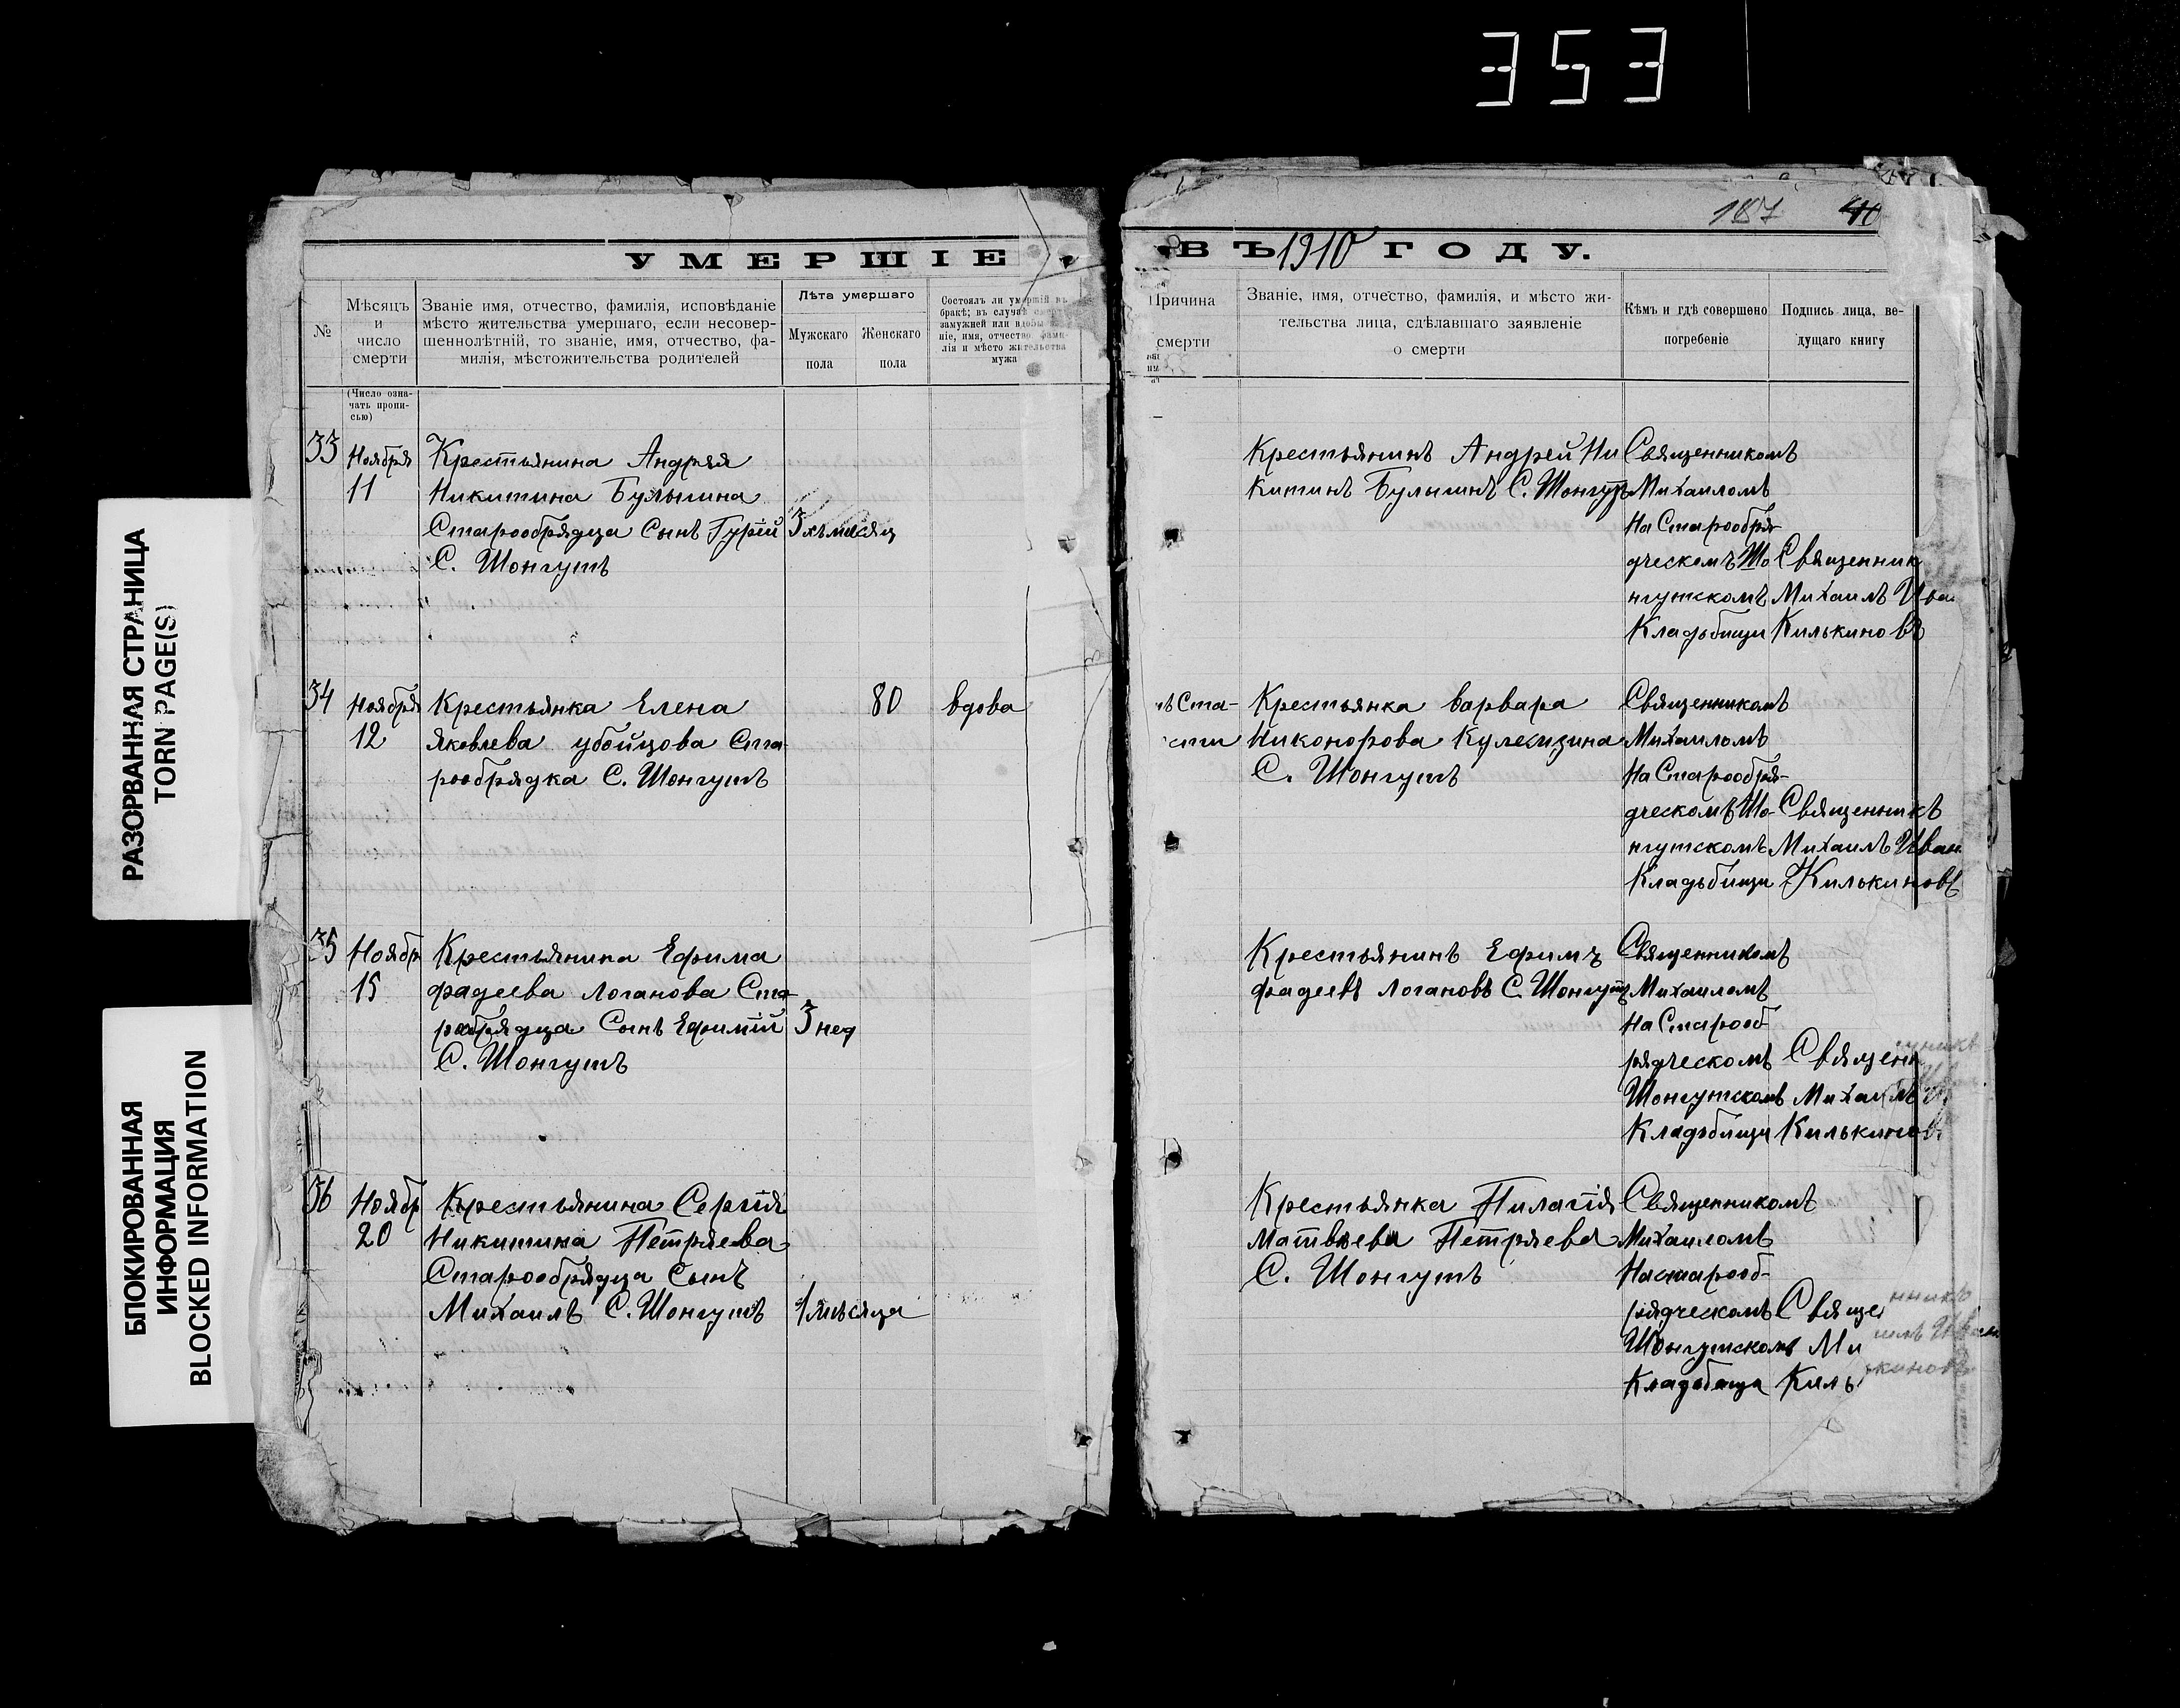 353
РАЗОРВАННАЯ СТРАНИЦА
TORN PAGE(S)
БЛОКИРОВАННАЯ
ИНФОРМАЦИЯ
BLOCKED INFORMATION
187
УМЕРШІЕ
ВЪ 1910 ГОДУ.
№
Мѣсяцъ
и
число
смерти
Званіе имя, отчество, фамилія, исповѣданіе
мѣсто жительства умершаго, если несовер-
шеннолѣтній, то званіе, имя, отчество, фа-
милія, мѣстожительства родителей
Лѣта умершаго
Мужскаго
пола
Женскаго
пола
Состоялъ ли умершій въ
бракѣ; въ случаѣ
замужней или вдовы
ніе, имя, отчество фами
лія и мѣсто жительства
мужа
Причина
смерти
Званіе, имя, отчество, фамилія, и мѣсто жи-
тельства лица, сдѣлавшаго заявленіе
о смерти
Кѣмъ и гдѣ совершено
погребеніе
Подпись лица, ве-
дущаго книгу
(Число озна-
чать пропи-
сью)
33
Ноября
11
Крестьянина Андрея
Никитина Булыгина
Старообрядца Сынъ Гурій
С. Шонгутъ
3хъ месяц
Крестьянинъ Андрей Ни
китинъ Булыгинъ С. Шонгутъ
Священникомъ
Михаиломъ
На Старообря-
дческомъ Шо
нгутскомъ
Кладьбищи
Священник
Михаилъ Ива
Килькиновъ
34
Ноября
12
Крестьянка Елена
Яковлева убойцова Ста-
рообрядка С. Шонгутъ
80
вдова
ъ Ста-
сти
Крестьянка Варвара
Никонорова
С. Шонгутъ
Священникомъ
Михаиломъ
На Старообря-
дческомъ Шо-
нгутскомъ
Кладьбищи
Священникъ
Михаилъ Иван
Килькиновъ
35
Ноябр
15
Крестьянина Ефима
фадеева Логанова Ста-
робрядца Сынъ Ефимій
С. Шонгутъ
3 нед
Крестьянинъ Ефимъ
фадеевъ Логановъ С. Шонгутъ
Священникомъ
Михаиломъ
На Старооб
рядческомъ
Шонгутскомъ
Кладьбищи
Священ
Михаилъ И
Килькинов
36
Ноябр
20
Крестьянина Сергія
Никитина Петряева
Старообрядца Сынъ
Михаилъ С. Шонгутъ
1 мѣсяца
Крестьянка Пилагія
Матвѣева Петряева
С. Шонгутъ
Священникомъ
Михаиломъ
На старооб-
рядческомъ
Шонгутскомъ
Кладьбища
Священникъ
Ми илъ Иван
Килькиновъ